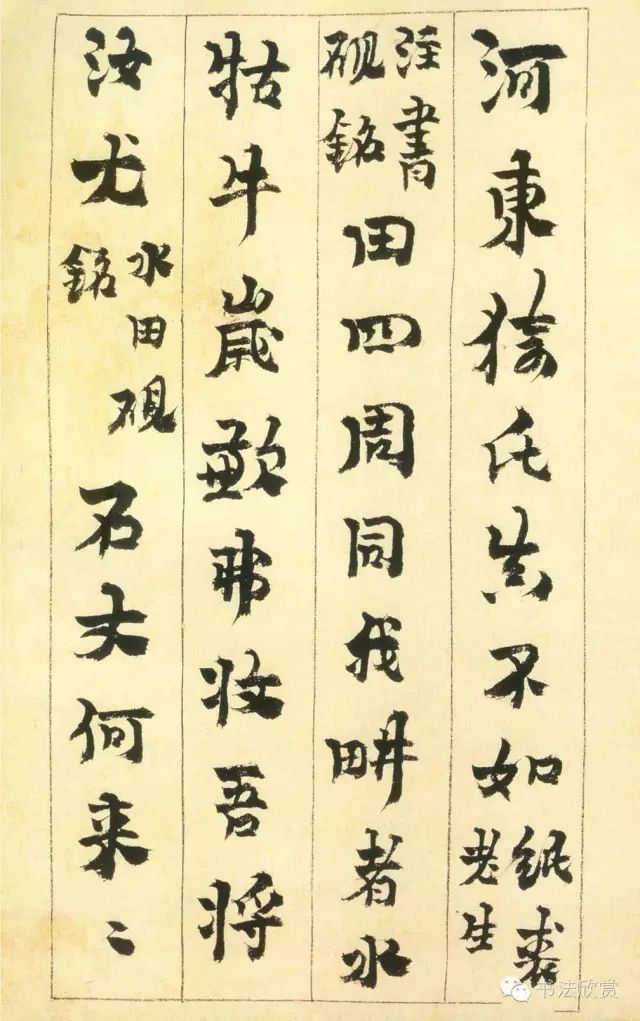 河東猗氏不如紙裘老生
注書硯銘田四周同我畊者水
牯牛歲歉弗收吾將
汝尤水田硯銘石丈何来〻
书法欣赏